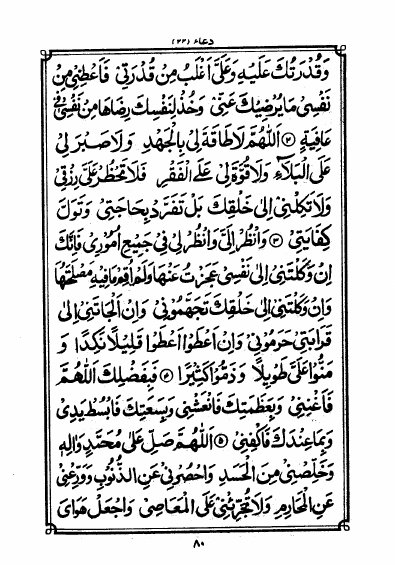 دعاء (٢٢)
وَقُدْرَتُكَ عَلَيْهِ وَعَلَيَّ أَغْلَبُ مِنْ قُدْرَتِي فَأَعْطِنِي مِنْ
نَفْسِي مَا يُرْضِيكَ عَنِّي وَخُذْ لِنَفْسِكَ رِضَاهَا مِنْ نَفْسِي فِي
عَافِيَةٍ ② اَللّٰهُمَّ لَا طَاقَةَ لِي بِالْجَهْدِ وَلَا صَبْرَ لِي
عَلَى الْبَلَآءِ وَلَا قُوَّةَ لِي عَلَى الْفَقْرِ فَلَا تَحْظُرْ عَلَيَّ رِزْقِي
وَلَا تَكِلْنِي إِلَى خَلْقِكَ بَلْ تَفَرَّدْ بِحَاجَتِي وَتَوَلَّ
كِفَايَتِي ③ وَانْظُرْ إِلَيَّ وَانْظُرْ لِي فِي جَمِيعِ أُمُورِي فَإِنَّكَ
إِنْ وَكَلْتَنِي إِلَى نَفْسِي عَجَزْتُ عَنْهَا وَلَمْ أُقِمْ مَا فِيهِ مَصْلَحَتُهَا
وَإِنْ وَكَلْتَنِي إِلَى خَلْقِكَ تَجَهَّمُونِي وَإِنْ أَلْجَأْتَنِي إِلَى
قَرَابَتِي حَرَمُونِي وَإِنْ أَعْطَوْا أَعْطَوْا قَلِيلًا نَكِدًا وَ
مَنُّوا عَلَيَّ طَوِيلًا وَذَمُّوا كَثِيرًا ④ فَبِفَضْلِكَ اَللّٰهُمَّ
فَأَغْنِنِي وَبِعَظَمَتِكَ فَانْعَشْنِي وَبِسَعَتِكَ فَابْسُطْ يَدِي
وَبِمَا عِنْدَكَ فَاكْفِنِي ⑤ اَللّٰهُمَّ صَلِّ عَلَى مُحَمَّدٍ وَاٰلِهِ
وَخَلِّصْنِي مِنَ الْحَسَدِ وَاحْصُرْنِي عَنِ الذُّنُوبِ وَوَرِّعْنِي
عَنِ الْمَحَارِمِ وَلَا تُجَرِّئْنِي عَلَى الْمَعَاصِي وَاجْعَلْ هَوَايَ
٨٠